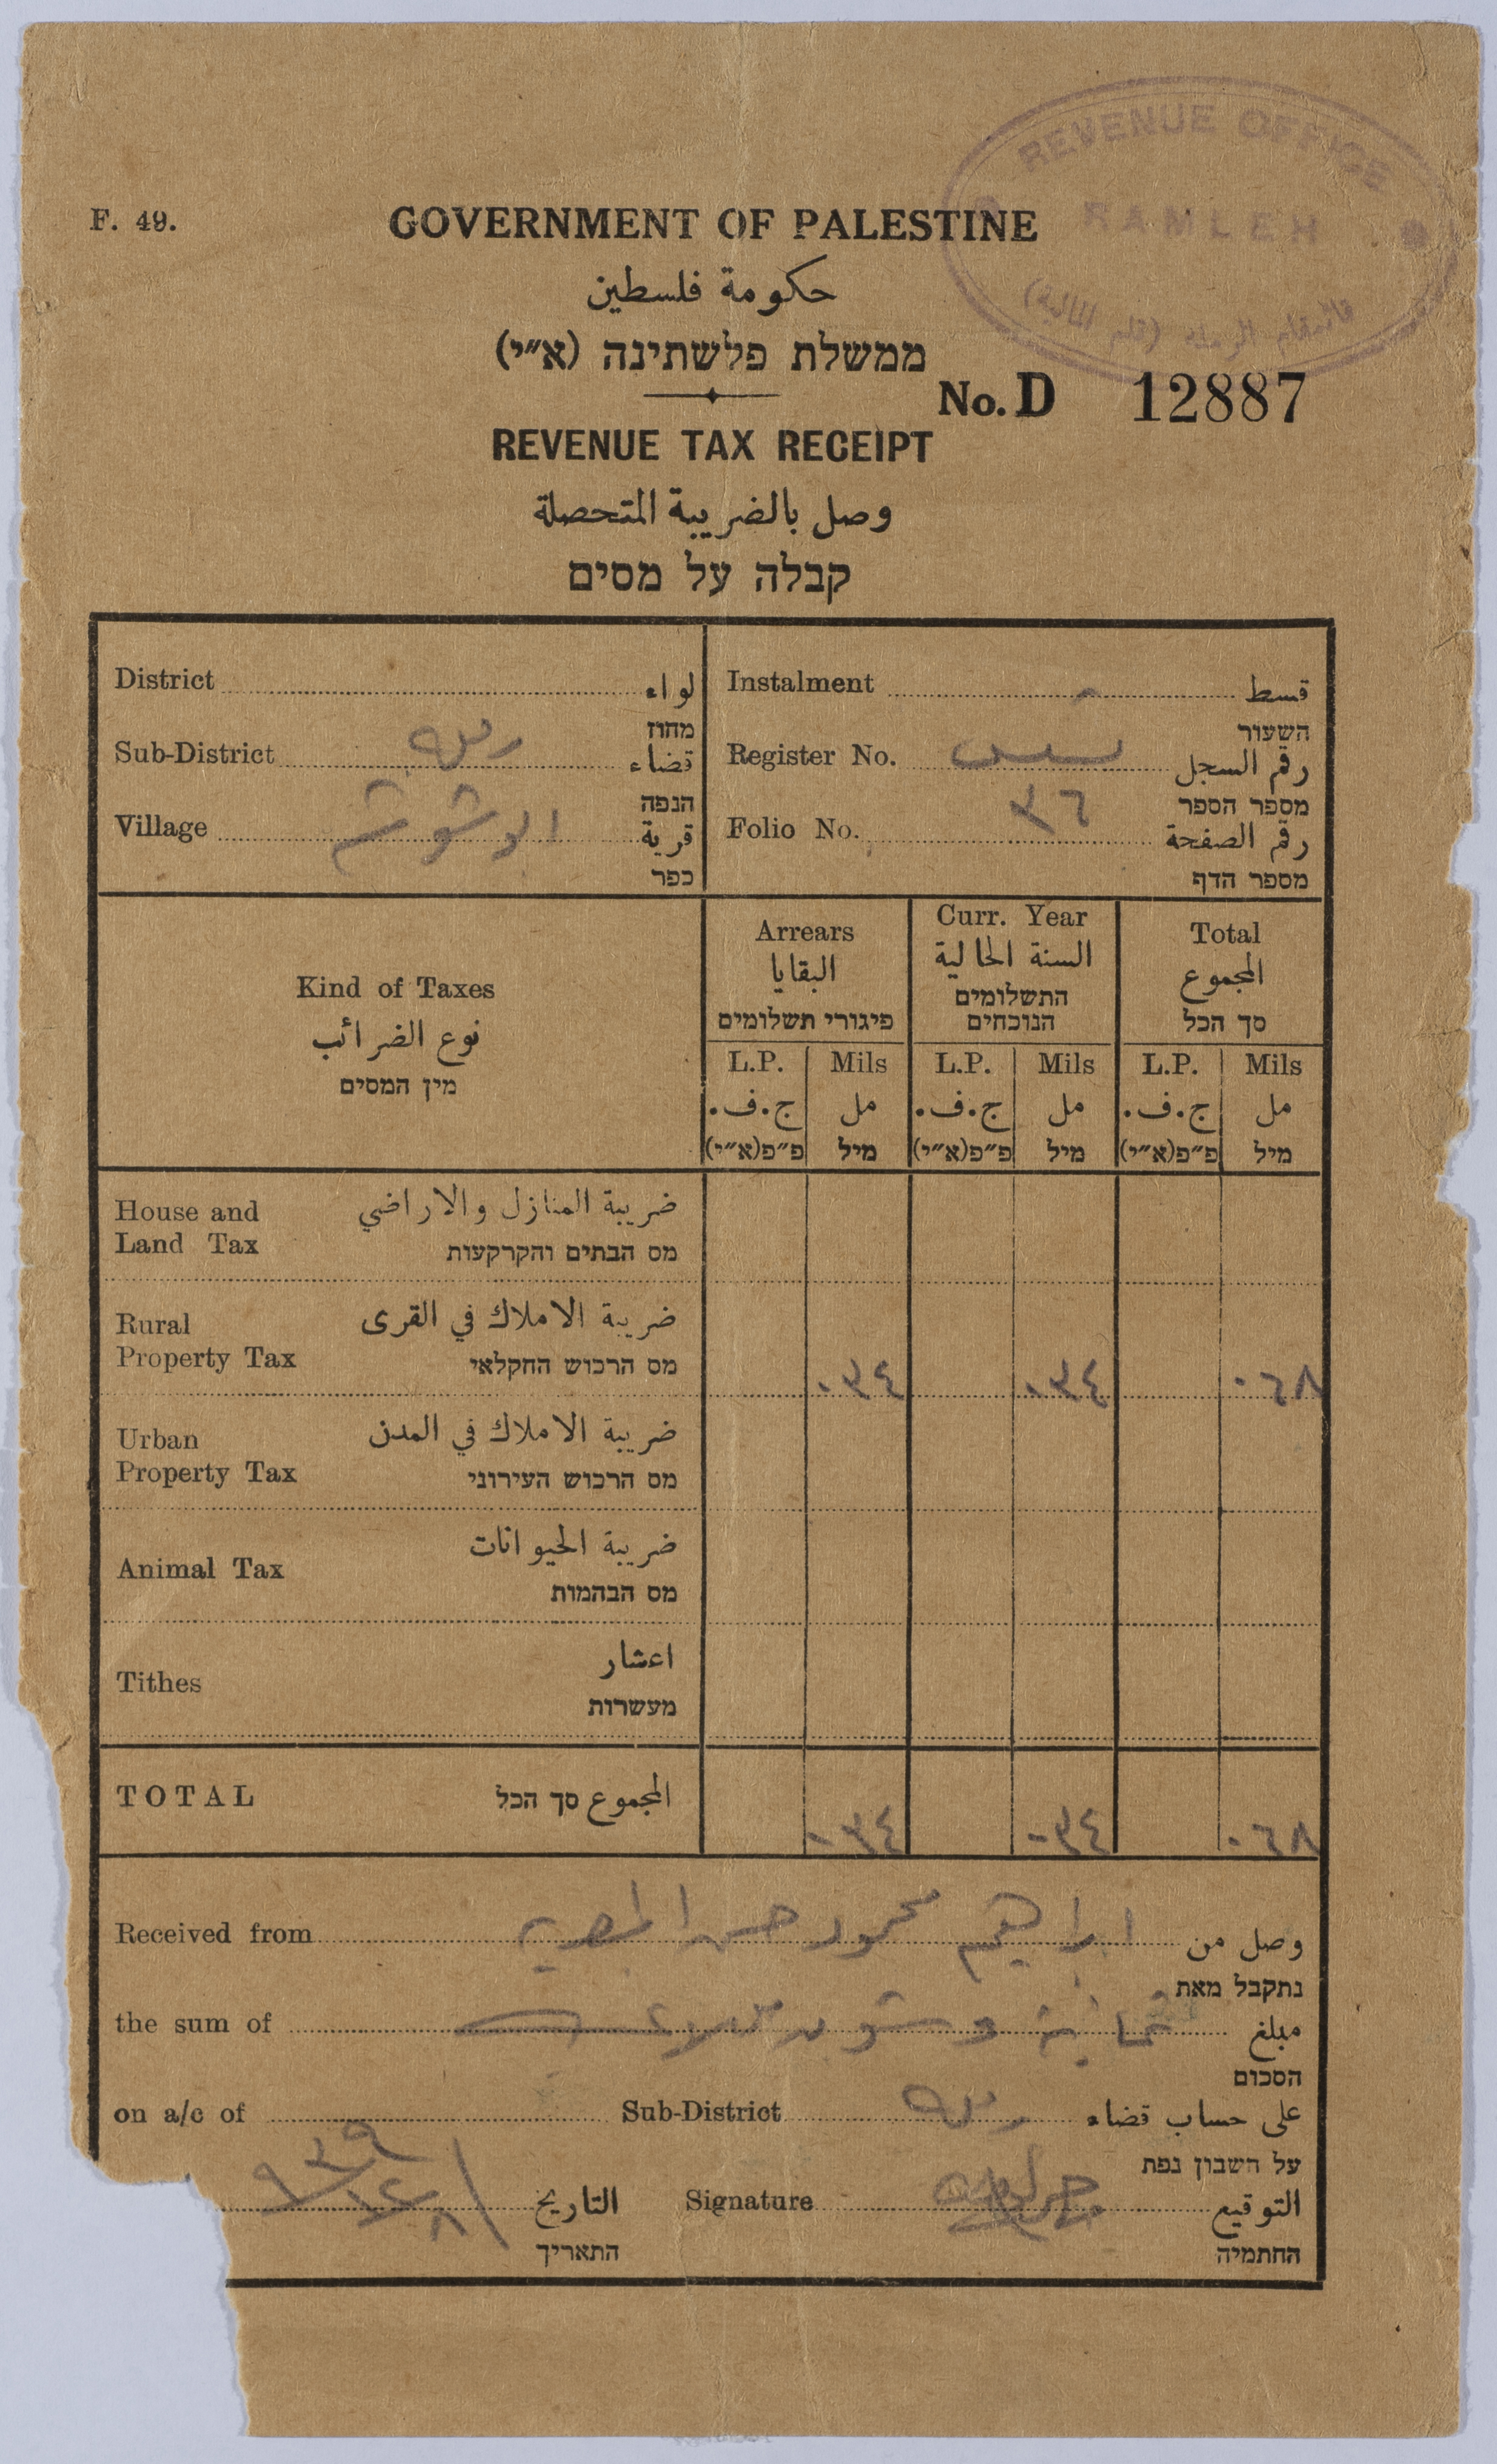 REVENUE OFFICE
RAMLEH
قائمقام الرملة (قلم المالية)
F. 49.
GOVERNMENT OF PALESTINE
حكومة فلسطين
ממשלת פלשתינה (א״י)
No. D 12887
REVENUE TAX RECEIPT
وصل بالضريبة المتحصلة
קבלה על מסים
District لواء
מחוז
Sub-District رمله قضاء
הנפה
Village ابو شوشة قرية
כפר
Instalment قسط
השעור
Register No. رقم السجل
מספר הספר
Folio No. ٣٦ رقم الصفحة
מספר הדף
Kind of Taxes
نوع الضرائب
מין המסים
Arrears
البقايا
פיגורי תשלומים
Curr. Year
السنة الحالية
התשלומים
הנוכחים
Total
المجموع
סך הכל
L.P. Mils L.P. Mils L.P. Mils
ج.ف. مل ج.ف. مل ج.ف. مل
פ״פ(א״י) מיל פ״פ(א״י) מיל פ״פ(א״י) מיל
House and ضريبة المنازل والاراضي
Land Tax מס הבתים והקרקעות
Rural ضريبة الاملاك في القرى
Property Tax מס הרכוש החקלאי
٠٣٤ ٠٣٤ ٠٦٨
Urban ضريبة الاملاك في المدن
Property Tax מס הרכוש העירוני
Animal Tax ضريبة الحيوانات
מס הבהמות
Tithes اعشار
מעשרות
TOTAL المجموع סך הכל ٠٣٤ ٠٣٤ ٠٦٨
Received from ابراهيم محمود حسن المصري وصل من
נתקבל מאת
the sum of ثمانية وستون ملا مبلغ
הסכום
on a/c of Sub-District رمله على حساب قضاء
על חשבון נפת
التاريخ Signature التوقيع
התאריך החתמיה